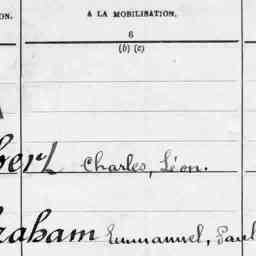 ON.
A LA MOBILISATION.
6
(b) (c)
bert Charles, Léon.
raham Emmanuel, Paul